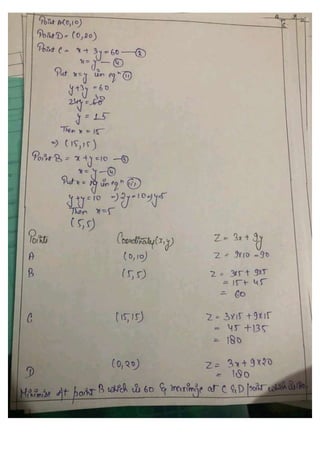 Point A(0,10)
Point D = (0,20)
Point C = x + 3y = 60 —
x = y —
Put x = y in eqn (ii)
y + 3y = 60
= 60
y = 15
Then x = 15
⇒ (15,15)
Point B = x + y = 10 —
x = y —
Put x = y in eqn
y + y = 10 ⇒ 2y = 10 ⇒ y = 5
Then x = 5
(5,5)
Points Coordinates(x,y) Z = 3x + 9y
A (0,10) Z = 9×10 = 90
B (5,5) Z = 3×5 + 9×5
= 15 + 45
= 60
C (15,15) Z = 3×15 + 9×15
= 45 + 135
= 180
D (0,20) Z = 3x + 9×20
= 180
Minimise at point B which is 60 & maximize at C & D point which is 180.